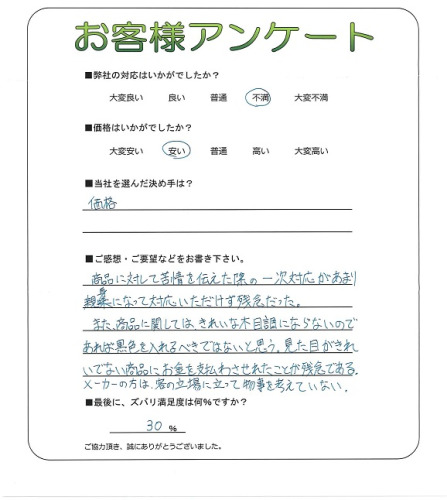 お客様アンケート
■弊社の対応はいかがでしたか?
大変良い 良い 普通 不満 大変不満
■価格はいかがでしたか?
大変安い 安い 普通 高い 大変高い
■当社を選んだ決め手は?
価格
■ご感想・ご要望などをお書き下さい。
商品に対して苦情を伝えた際の一次対応があまり
親身になって対応いただけず残念だった。
また、商品に関しては、きれいな木目調にならないので
あれば黒色を入れるべきではないと思う。見た目がきれ
いでない商品にお金を支払わさせれたことが残念である。
メーカーの方は、客の立場に立って物事を考えていない。
■最後に、ズバリ満足度は何%ですか?
30 %
ご協力頂き、誠にありがとうございました。